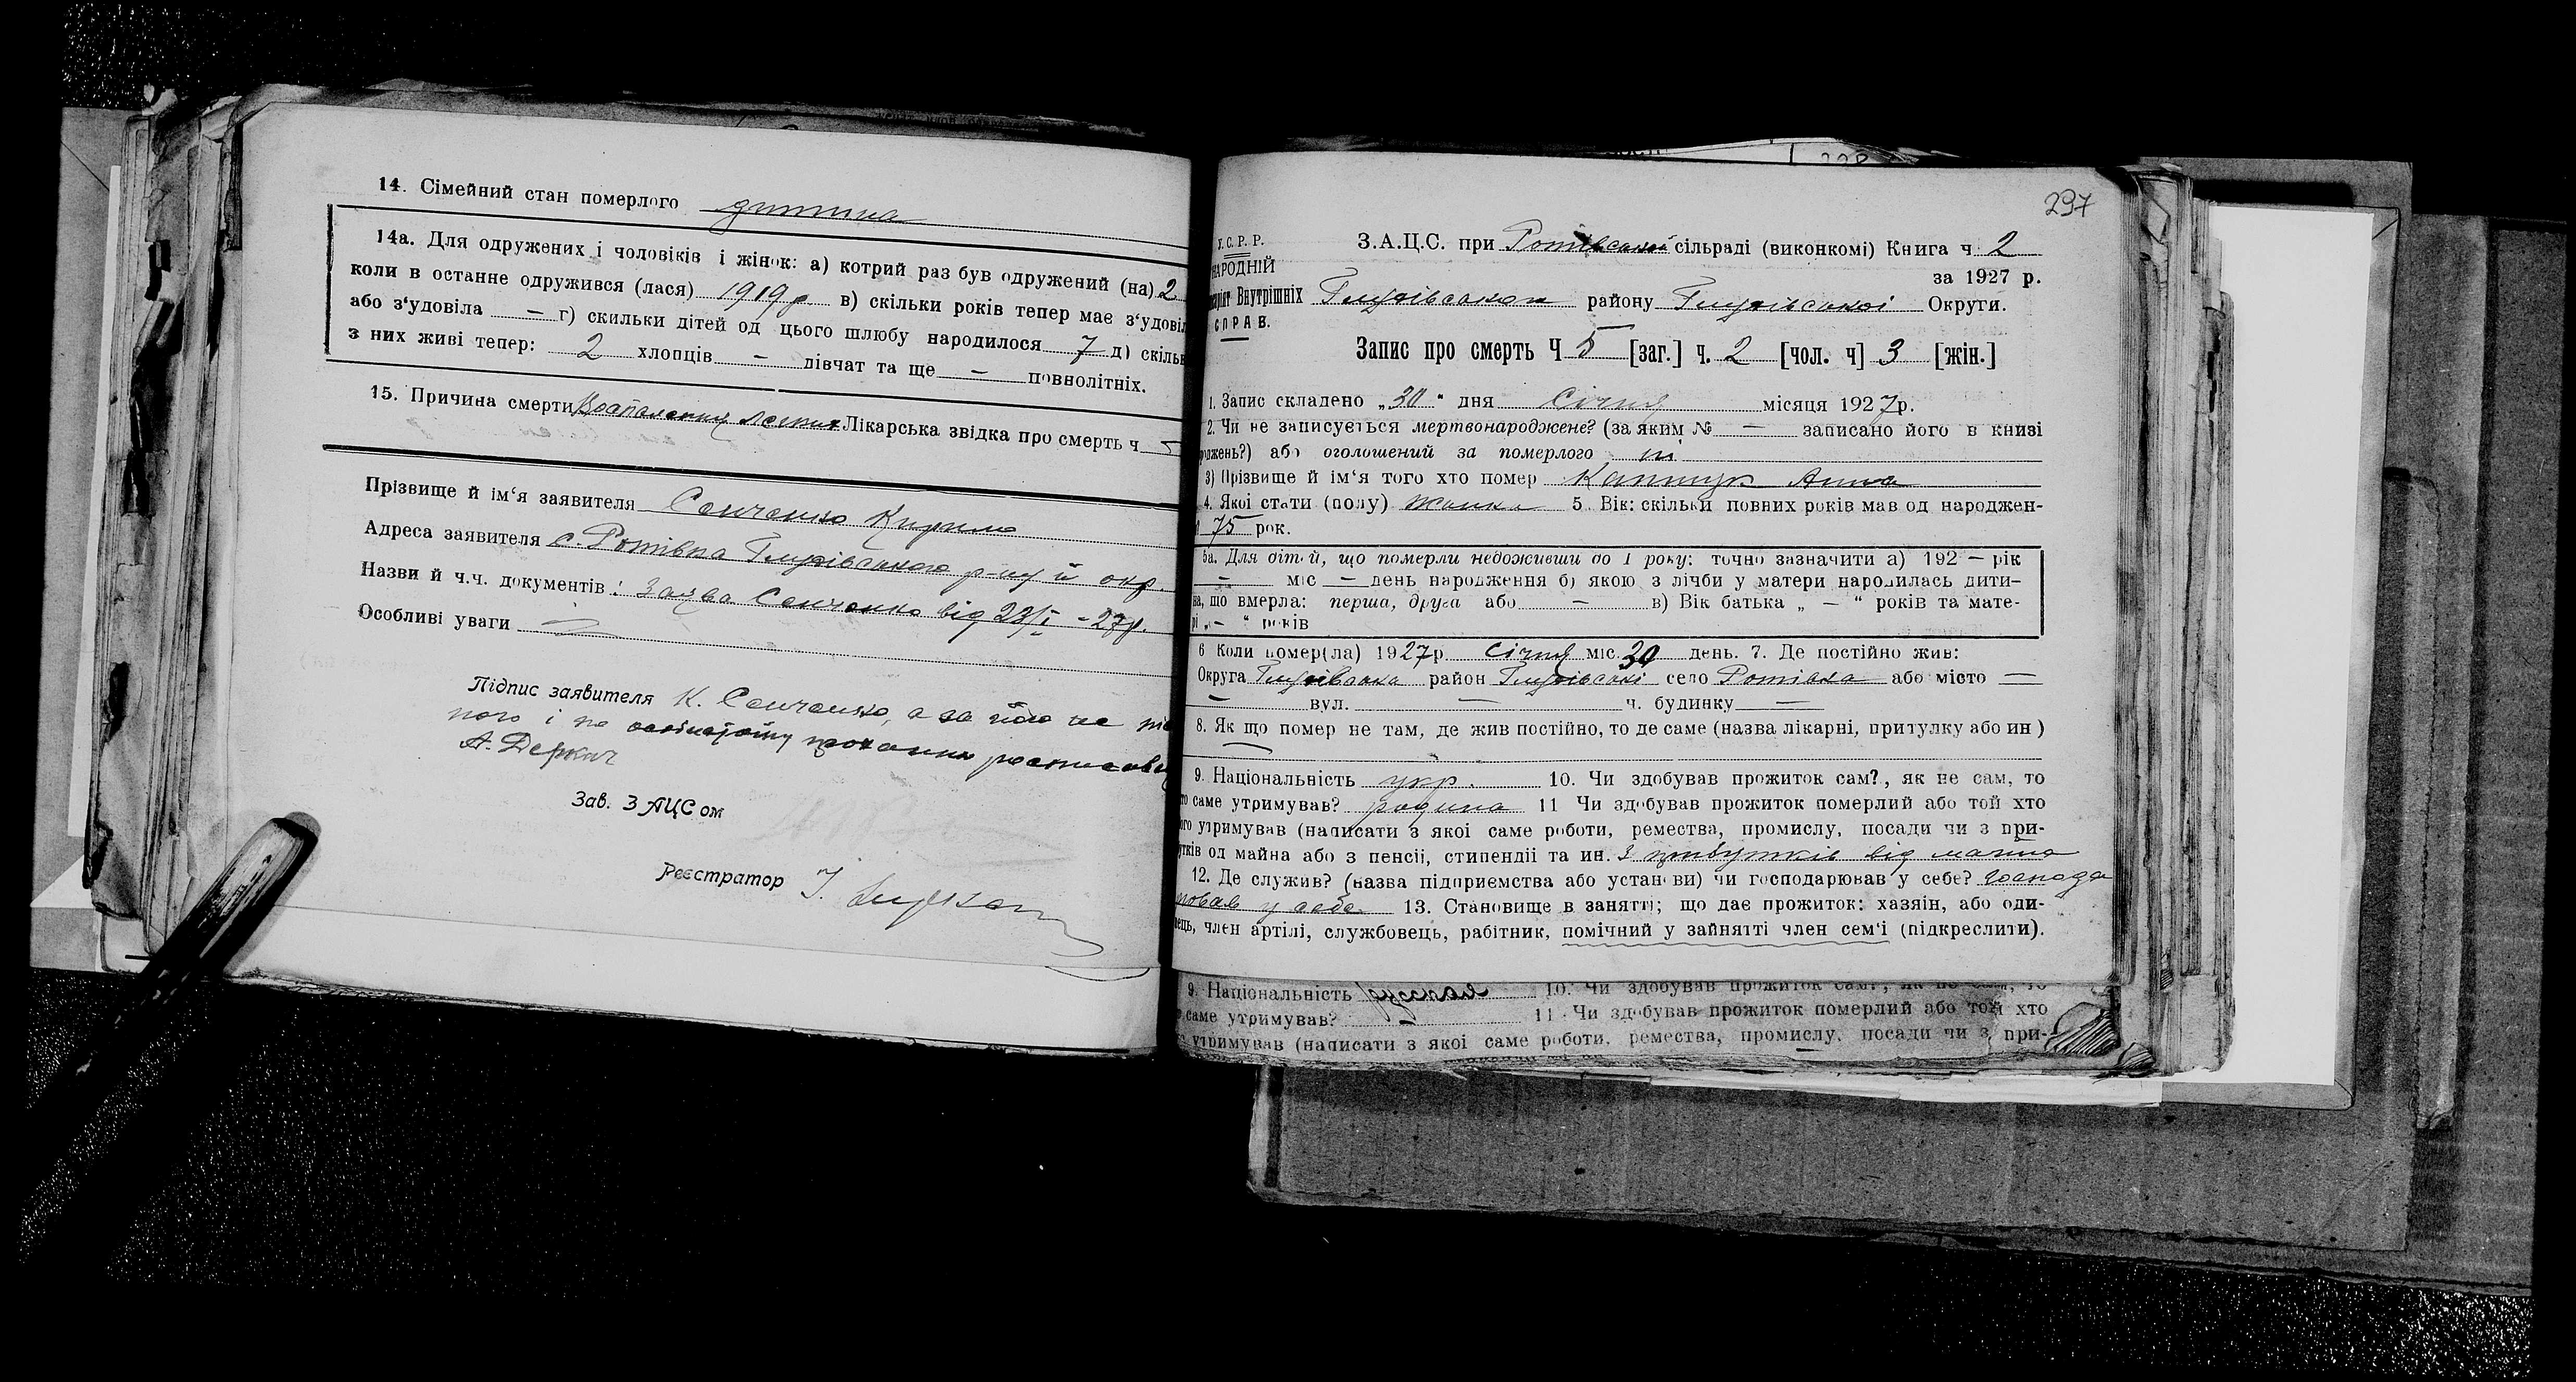 14. Сімейний стан померлого дитина
14а. Для одружених і чоловіків і жінок: а) котрий раз був одружений (на) 2
коли в останне одружився (лася) 1919 р в) скільки років тепер має з‘удовіл
або з‘удовіла — г) скильки дітей од цього шлюбу народилося 7 д) скільк
з них живі тепер: 2 хлопців — дівчат та ще — повнолітніх.
15. Причина смерти Воспаление легких Лікарська звідка про смерть ч
Прізвище й ім‘я заявителя Сенченко Кирило
Адреса заявителя с. Ротівка Глухівського р-ну й окр.
Назви й ч.ч. документів: Заява Сенченко від 28/I - 27р.
Особливі уваги
Підпис заявителя К. Сенченко, а за його не
ного і по прохання
А. Деркач
Зав. ЗАЦСом
Реєстратор І.
297
У.С.Р.Р.
НАРОДНІЙ
Внутрішніх
СПРАВ.
З.А.Ц.С. при Ротівській сільраді (виконкомі) Книга ч 2
за 1927 р.
Глухівського району Глухівської Округи.
Запис про смерть Ч 5 [заг.] ч. 2 [чол. ч] 3 [жін.]
1. Запис складено „30“ дня Січня місяця 1927р.
2. Чи не записується мертвонароджене? (за яким № — записано його в книзі
роджень?) або оголошений за померлого ні
3) Прізвище й ім‘я того хто помер Капшук Анна
4. Якої стати (полу) жінка 5. Вік: скільки повних років мав од народжен-
75 рок.
5а. Для дітей, що померли недоживши до 1 року: точно зазначити а) 192 — рік
— міс — день народження б) якою з лічби у матери народилась дити-
на, що вмерла: перша, друга або — в) Вік батька „ — “ років та мате-
рі „ — “ років
6 Коли помер(ла) 1927р Січня міс. 30 день. 7. Де постійно жив:
Округа Глухівська район Глухівські село Ротівка або місто —
— вул. — ч. будинку —
8. Як що помер не там, де жив постійно, то де саме (назва лікарні, притулку або ин )
—
9. Національність укр. 10. Чи здобував прожиток сам?, як не сам, то
то саме утримував? родина 11 Чи здобував прожиток померлий або той хто
ого утримував (написати з якоі саме роботи, ремества, промислу, посади чи з при-
утків од майна або з пенсіі, стипендіі та ин. З прибутків від майна
12. Де служив? (назва підприємства або установи) чи господарював у себе? господа
ровав у себе 13. Становище в занятті; що дає прожиток: хазяін, або оди-
нець, член артілі, службовець, рабітник, помічний у зайнятті член сем‘і (підкреслити).
9. Національність руская 10. Чи здобував прожиток сам?, як не сам, то
саме утримував? — 11. Чи здобував прожиток померлий або той хто
утримував (написати з якоі саме роботи, ремества, промислу, посади чи з при-